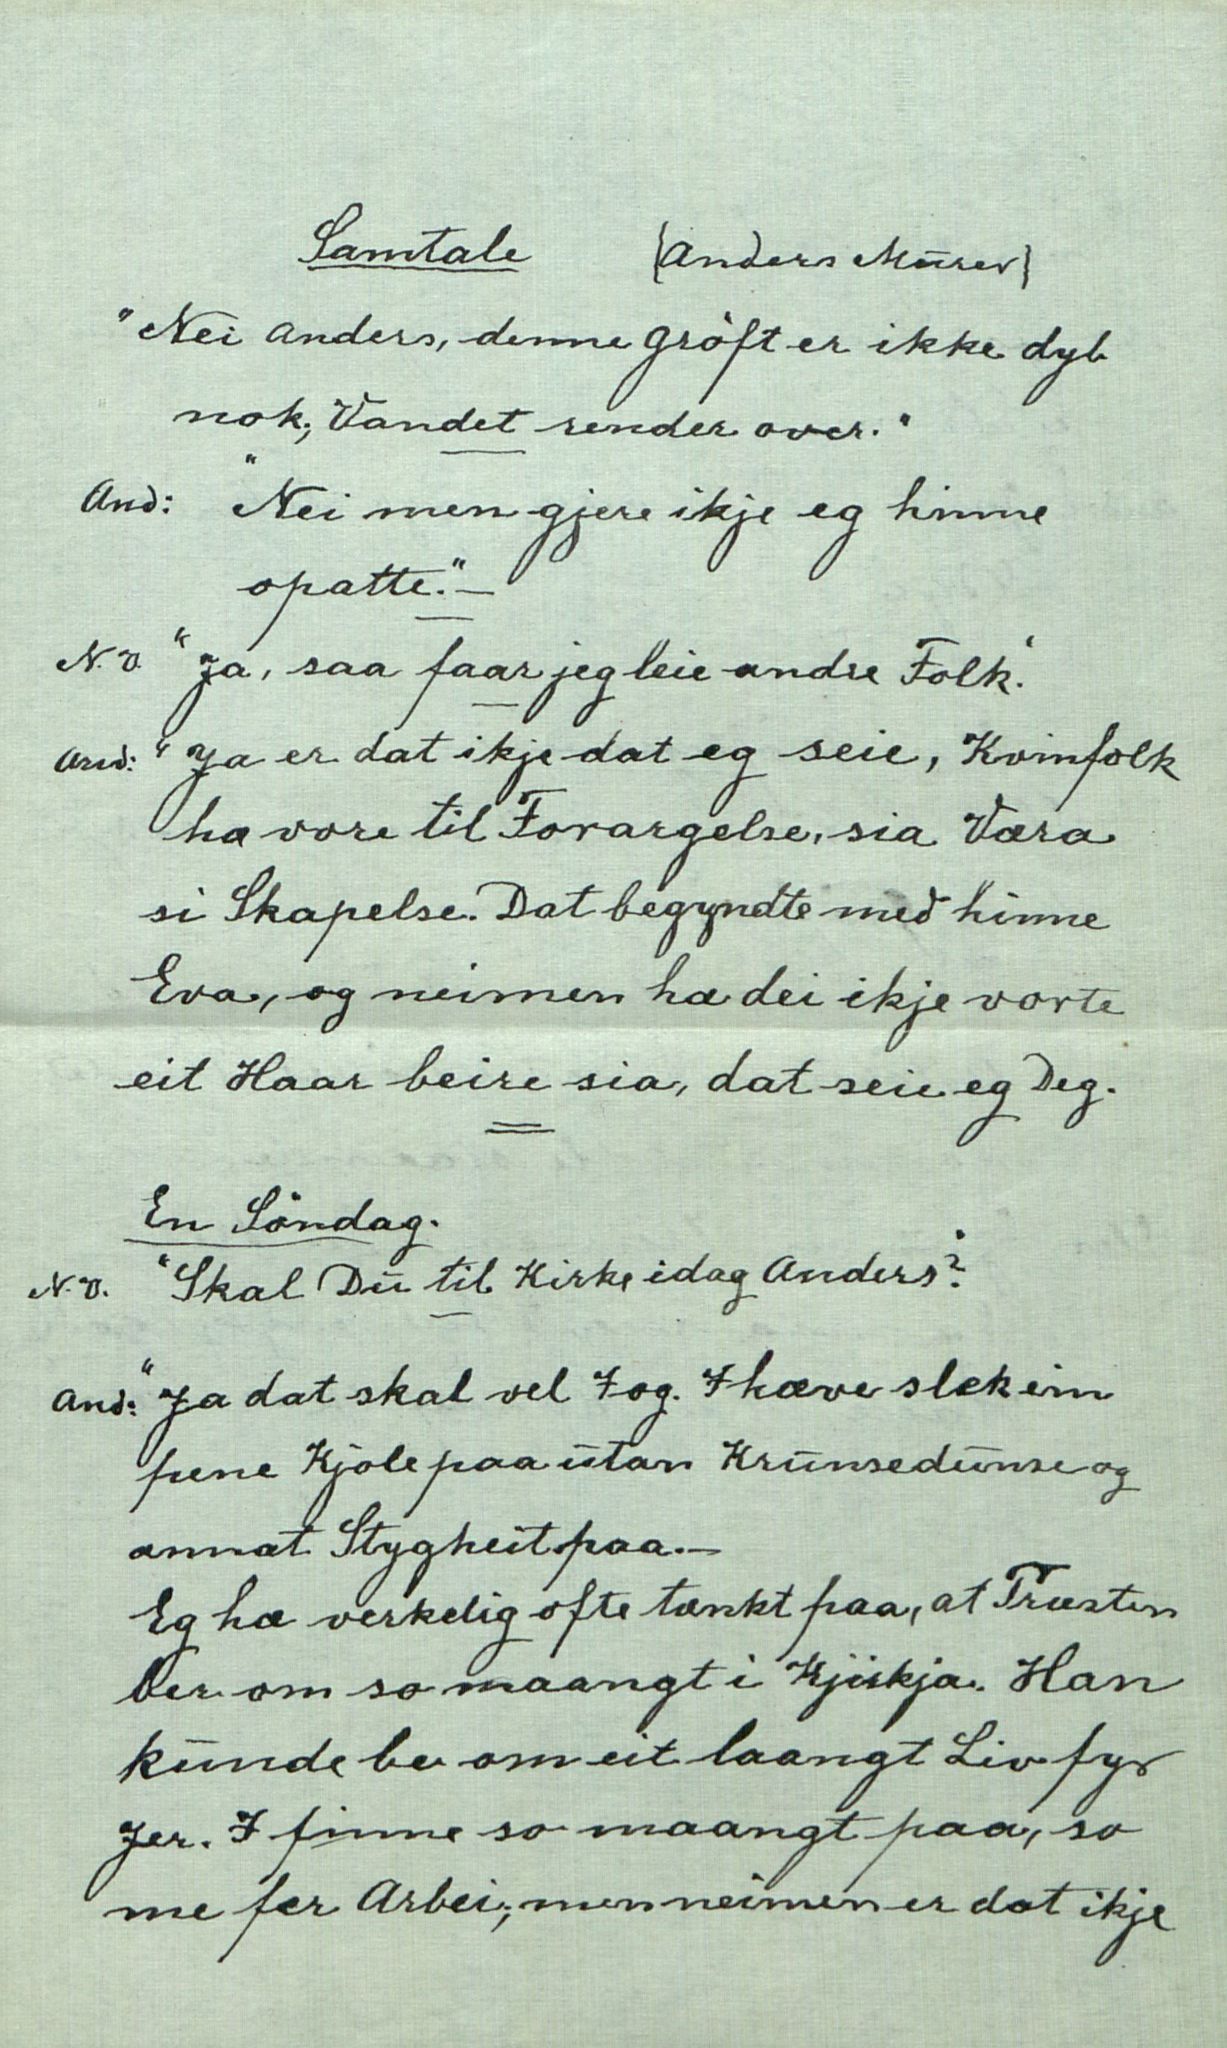 Samtale {Anders Murer}
"Nei Anders, denne Gröft er ikke dyb
nok; Vandet render over."
And: "Nei men gjere ikje eg hinne
opatte."—
N.V. "Ja, saa faar jeg leie andre Folk."
And: "Ja er dat ikje dat eg seie, Kvinfolk
hæ vore til Forargelse, sia Væra
si Skapelse. Dat begyndte med hinne
Eva, og neimen hæ dei ikje vorte
eit Haar beire sia, dat seie eg Deg.
En Söndag.
N.V. "Skal Du til Kirke idag Anders"?
And: "Ja dat skal vel I og. I hæve slek ein
pene Kjole paa utan Krunsedunse og
annat Stygheit paa.—
Eg hæ verkelig ofte tænkt paa, at Præsten
ber om so maangt i Kjirkja. Han
kunde be om eit laangt Liv fyr
Jer. I finne so maangt paa, so
me fær Arbei; men neimen er dat ikje